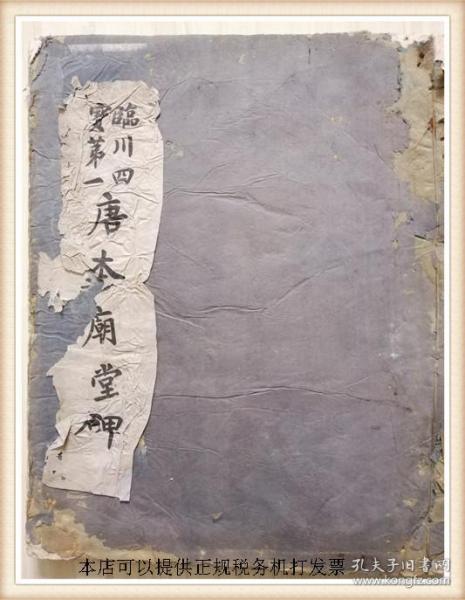 臨川四
寶第一
唐本廟堂碑
本店可以提供正规税务机打发票
孔夫子旧书网
www.kongfz.com